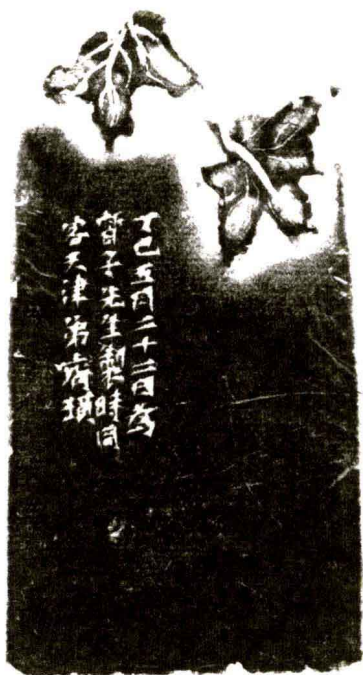 丁巳五月二十二日為
晳子先生製時同
客天津弟齊璜